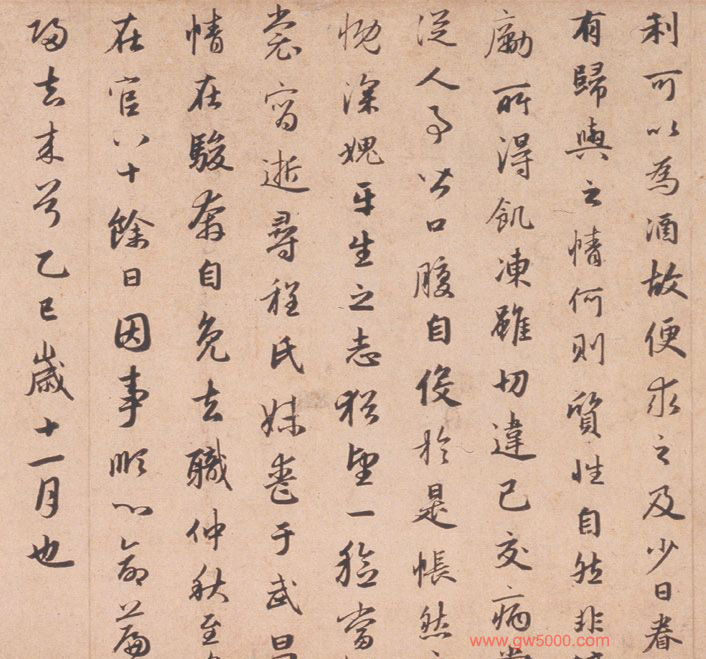 利可以為酒故便求之及少日眷
有歸輿之情何則質性自然非
勵所得飢凍雖切違己交病
從人事皆口腹自役於是悵然
慨深愧平生之志猶望一稔當
裳宵逝尋程氏妹喪于武昌
情在駿奔自免去職仲秋至
在官八十餘日因事順心命篇
歸去来兮乙巳歲十一月也
www.gw5000.com